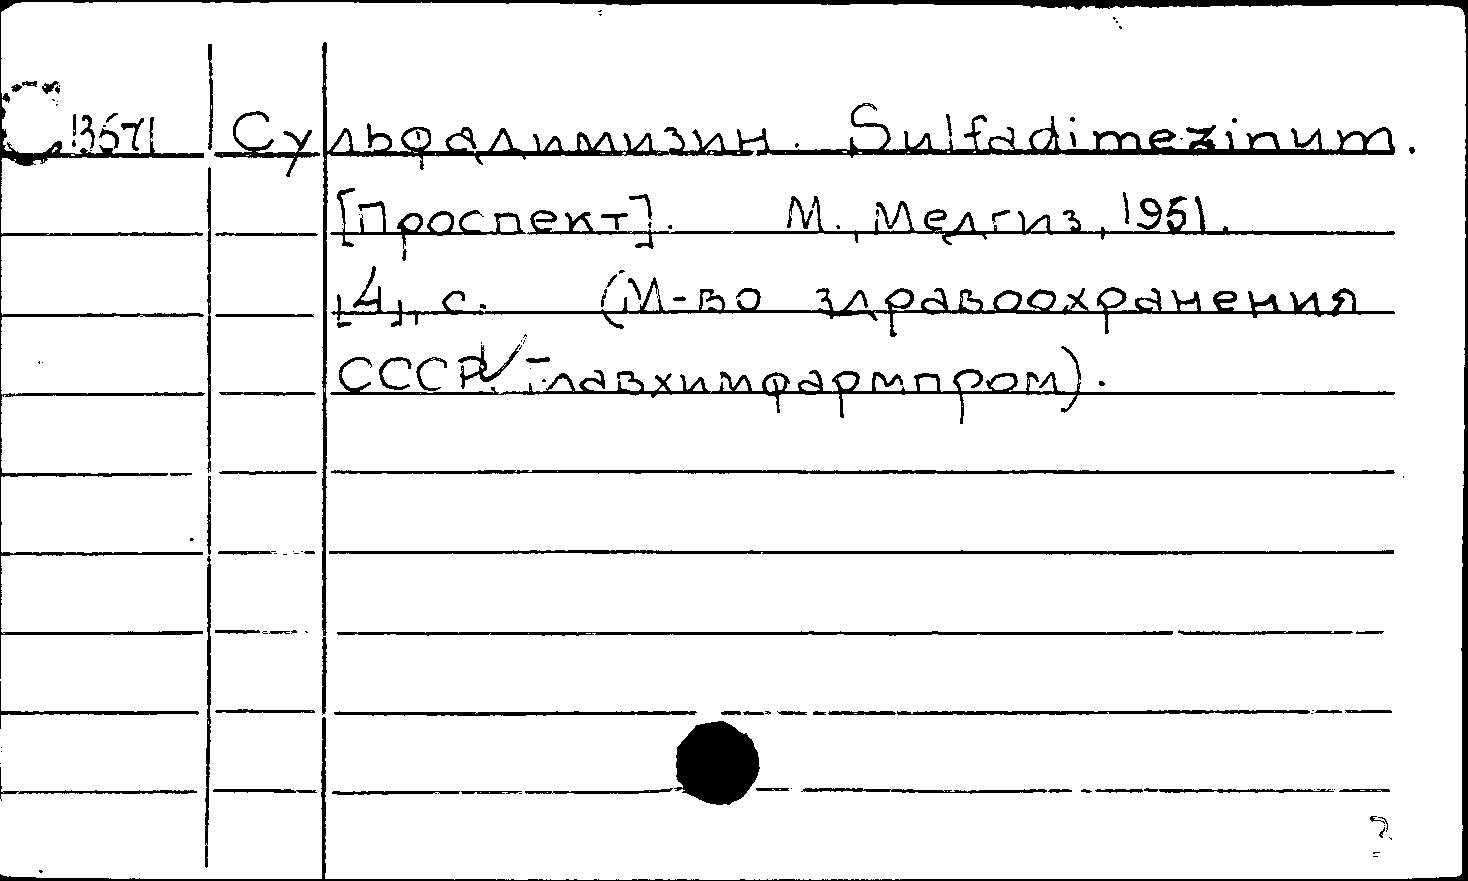 С13571 Сульфадимизин. Sulfadimezinum.
[Проспект]. М., Медгиз, 1951.
[4], с. (М-во здравоохранения
СССР. Главхимфармпром).